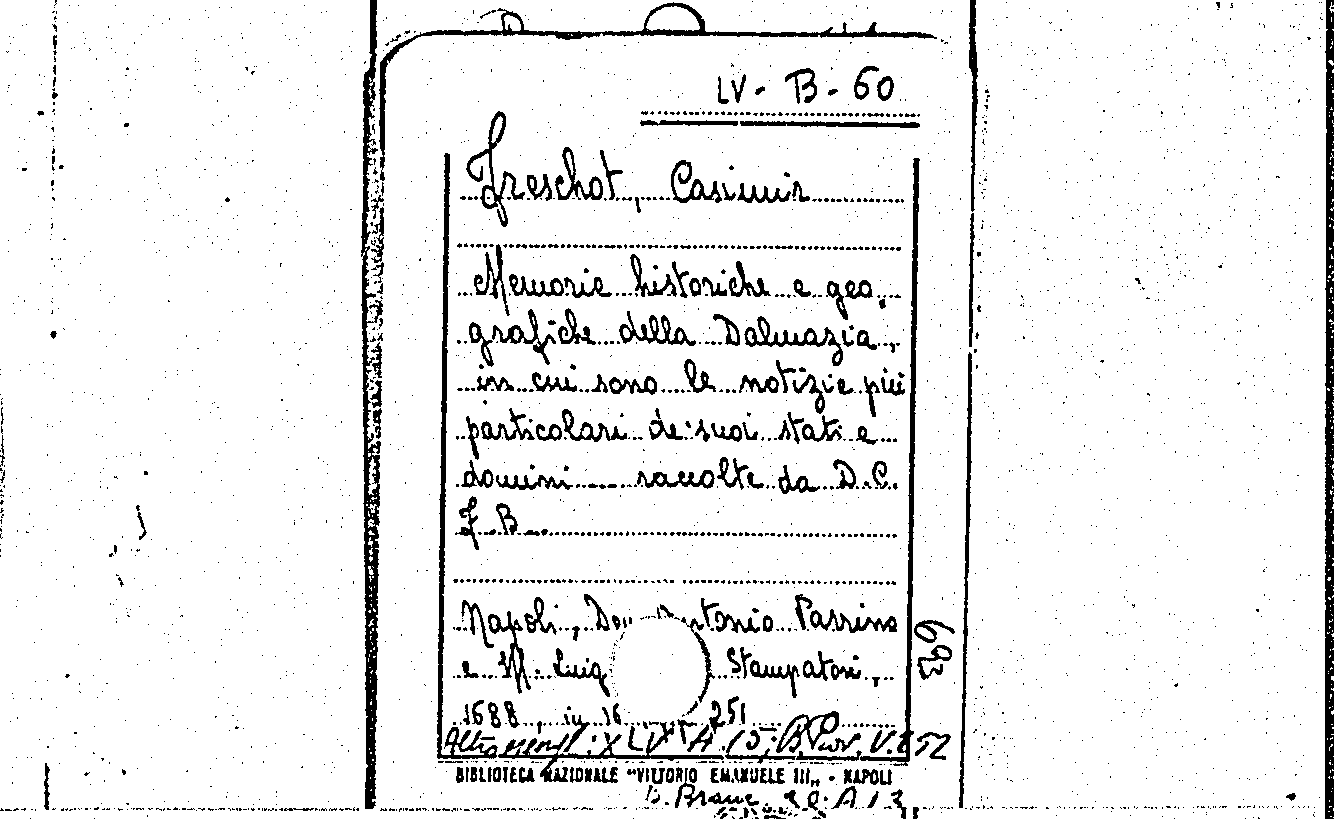 LV - B - 60
Freschot, Casimir
Memorie historiche e geo-
grafiche della Dalmazia,
in cui sono le notizie più
particolari de' suoi stati e
domini .... raccolte da D.C.
F. B...
Napoli, Dom. Antonio Parrino
e M. Luig Stampatori,
1688, in 16 251
Altro esempl: XLIV A. 15; B. Prov. V. E 52
693
BIBLIOTECA NAZIONALE "VITTORIO EMANUELE III" - NAPOLI
B. Branc.